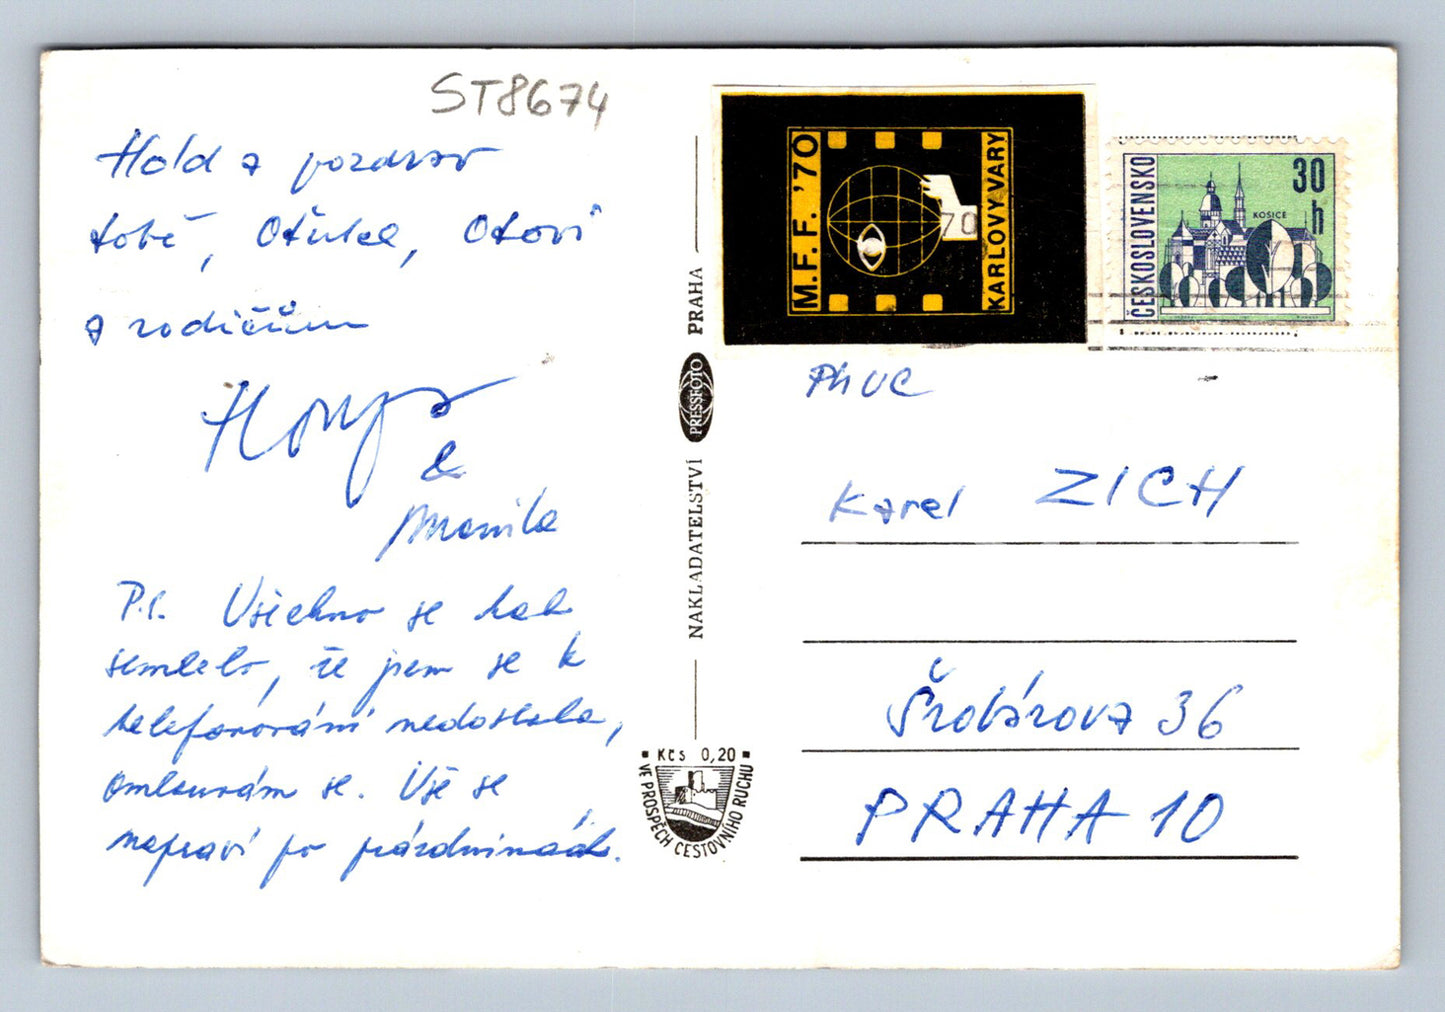 ST8674
Hold a pozdrav
tobě, Otulce, Otovi
a rodičům
Honza
&
P.S. Všechno se tak
semlelo, že jsem se k
telefonování nedostala,
omlouvám se. Vše se
napraví po prázdninách.
NAKLADATELSTVÍ PRESSFOTO PRAHA
Kčs 0,20
VE PROSPĚCH CESTOVNÍHO RUCHU
M.F.F. '70
KARLOVY VARY
70
ČESKOSLOVENSKO
30 h
KOSICE
PhUC
Karel ZICH
Šrobárova 36
PRAHA 10